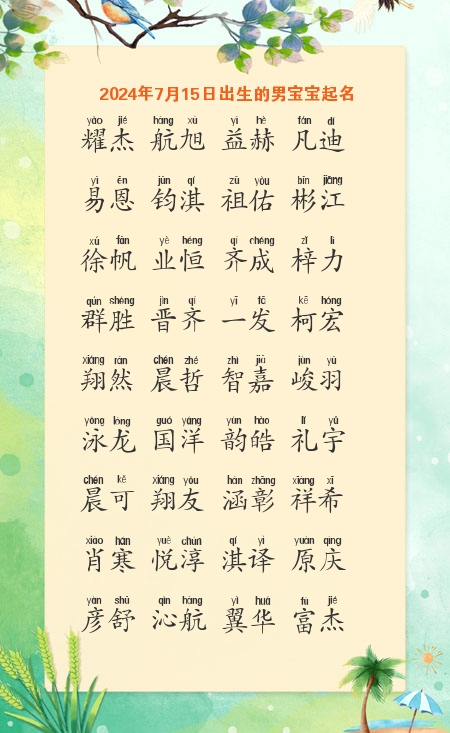 2024年7月15日出生的男宝宝起名
yào jié háng xù yì hè fán dí
耀杰 航旭 益赫 凡迪
yì ēn jūn qí zǔ yòu bīn jiāng
易恩 钧淇 祖佑 彬江
xú fān yè héng qí chéng zǐ lì
徐帆 业恒 齐成 梓力
qún shèng jìn qí yī fā kē hóng
群胜 晋齐 一发 柯宏
xiáng rán chén zhé zhì jiā jùn yǔ
翔然 晨哲 智嘉 峻羽
yǒng lóng guó yáng yùn hào lǐ yǔ
泳龙 国洋 韵皓 礼宇
chén kě xiáng yǒu hán zhāng xiáng xī
晨可 翔友 涵彰 祥希
xiāo hán yuè chún qí yì yuán qìng
肖寒 悦淳 淇译 原庆
yàn shū qìn háng yì huá fù jié
彦舒 沁航 翼华 富杰